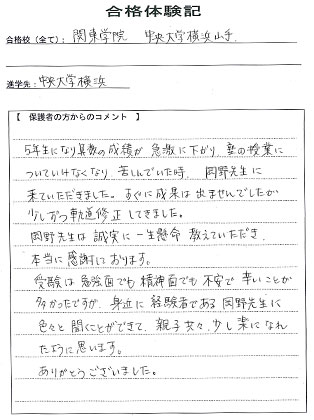 合格体験記
合格校(全て): 関東学院 中央大学横浜山手
進学先: 中央大学横浜
【 保護者の方からのコメント 】
5年生になり算数の成績が急激に下がり、塾の授業に
ついていけなくなり、苦しんでいた時、岡野先生に
来ていただきました。すぐに成果は出ませんでしたが
少しずつ軌道修正してきました。
岡野先生は誠実に一生懸命教えていただき、
本当に感謝しております。
受験は勉強面でも精神面でも不安で辛いことが
多かったですが、身近に経験者である岡野先生に
色々と聞くことができて、親子共々、少し楽になれ
たように思います。
ありがとうございました。